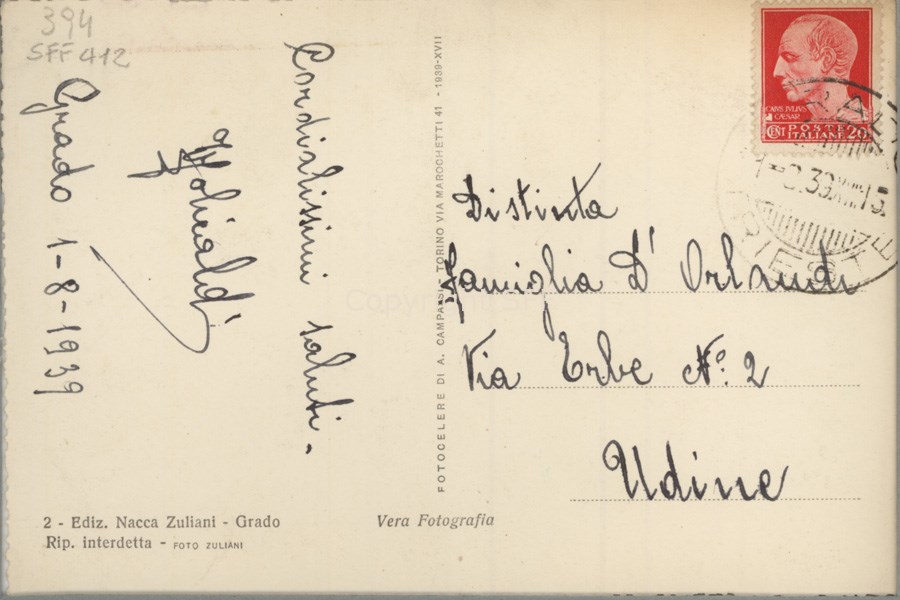 394
SFF 412
Cordialissimi saluti.
Grado 1-8-1939
FOTOCELERE DI A. CAMPASSI - TORINO VIA MAROCHETTI 41 - 1939-XVII
CAIVS IVLIVS
CAESAR
CENT POSTE 20
ITALIANE
TRIESTE
Distinta
Famiglia D'Orlandi
Via Erbe N.º 2
Udine
2 - Ediz. Nacca Zuliani - Grado
Rip. interdetta - FOTO ZULIANI
Vera Fotografia